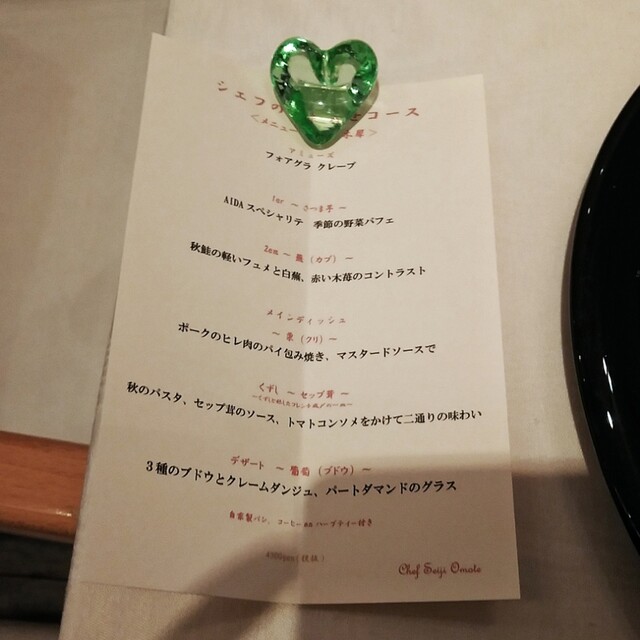 シェフの コース
＜メニュー ＞
アミューズ
フォアグラ クレープ
1er ～ さつま芋 ～
AIDAスペシャリテ 季節の野菜パフェ
2em ～ 蕪（カブ） ～
秋鮭の軽いフュメと白蕪、赤い木苺のコントラスト
メインディッシュ
～ 栗（クリ） ～
ポークのヒレ肉のパイ包み焼き、マスタードソースで
くずし ～ セップ茸 ～
秋のパスタ、セップ茸のソース、トマトコンソメをかけて二通りの味わい
デザート ～ 葡萄（ブドウ） ～
３種のブドウとクレームダンジュ、パートダマンドのグラス
自家製パン、コーヒー ハーブティー付き
（税抜）
Chef Seiji Omote